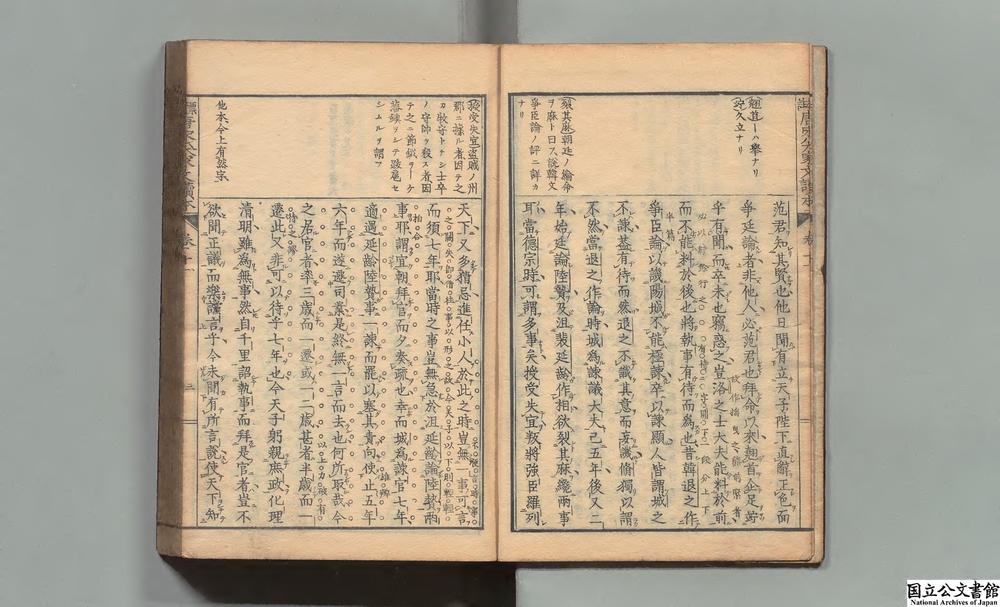 范君知其賢也他日聞有立天子陛下直辭正色面
爭廷論者非他人必范君也拜命以來翹首企足竚
乎有聞而卒未也竊惑之豈洛之士大夫能料於前
而不能料於後也將執事有待而為也昔韓退之作
爭臣論以譏陽城不能極諫卒以諫顯人皆謂城之
不諫蓋有待而然退之不識其意而妄譏脩獨以謂
不然當退之作論時城為諫議大夫已五年後又二
年始廷論陸贄及沮裴延齡作相欲裂其麻纔兩事
耳當德宗時可謂多事矣授受失宜叛將強臣羅列
天下又多猜忌進任小人於此之時豈無一事可言
而須七年耶當時之事豈無急於沮延齡論陸贄兩
事耶謂宜朝拜官而夕奏疏也幸而城為諫官七年
適遇延齡陸贄事一諫而罷以塞其責向使止五年
六年而遂遷司業是終無一言而去也何所取哉今
之居官者率三歲而一遷或一二歲甚者半歲而
遷此又非可以待乎七年也今天子躬親庶政化理
清明雖為無事然自千里詔執事而拜是官者豈不
欲聞正議而樂讜言乎今未聞有所言說使天下知
翹首ーハ擧ナリ
竚久立ナリ
裂其麻朝廷ノ綸命
ヲ麻ト曰ス說韓文
爭臣論ノ評ニ詳カ
ナリ
授受失宜盜賊ノ州
郡ニ據ル者因テ之
カ牧守トナシ士卒
ノ守帥ヲ殺ス者因
テ之ニ節鉞ヲーケ
シムルヲ謂フ
他本今上有然字
国立公文書館
National Archives of Japan